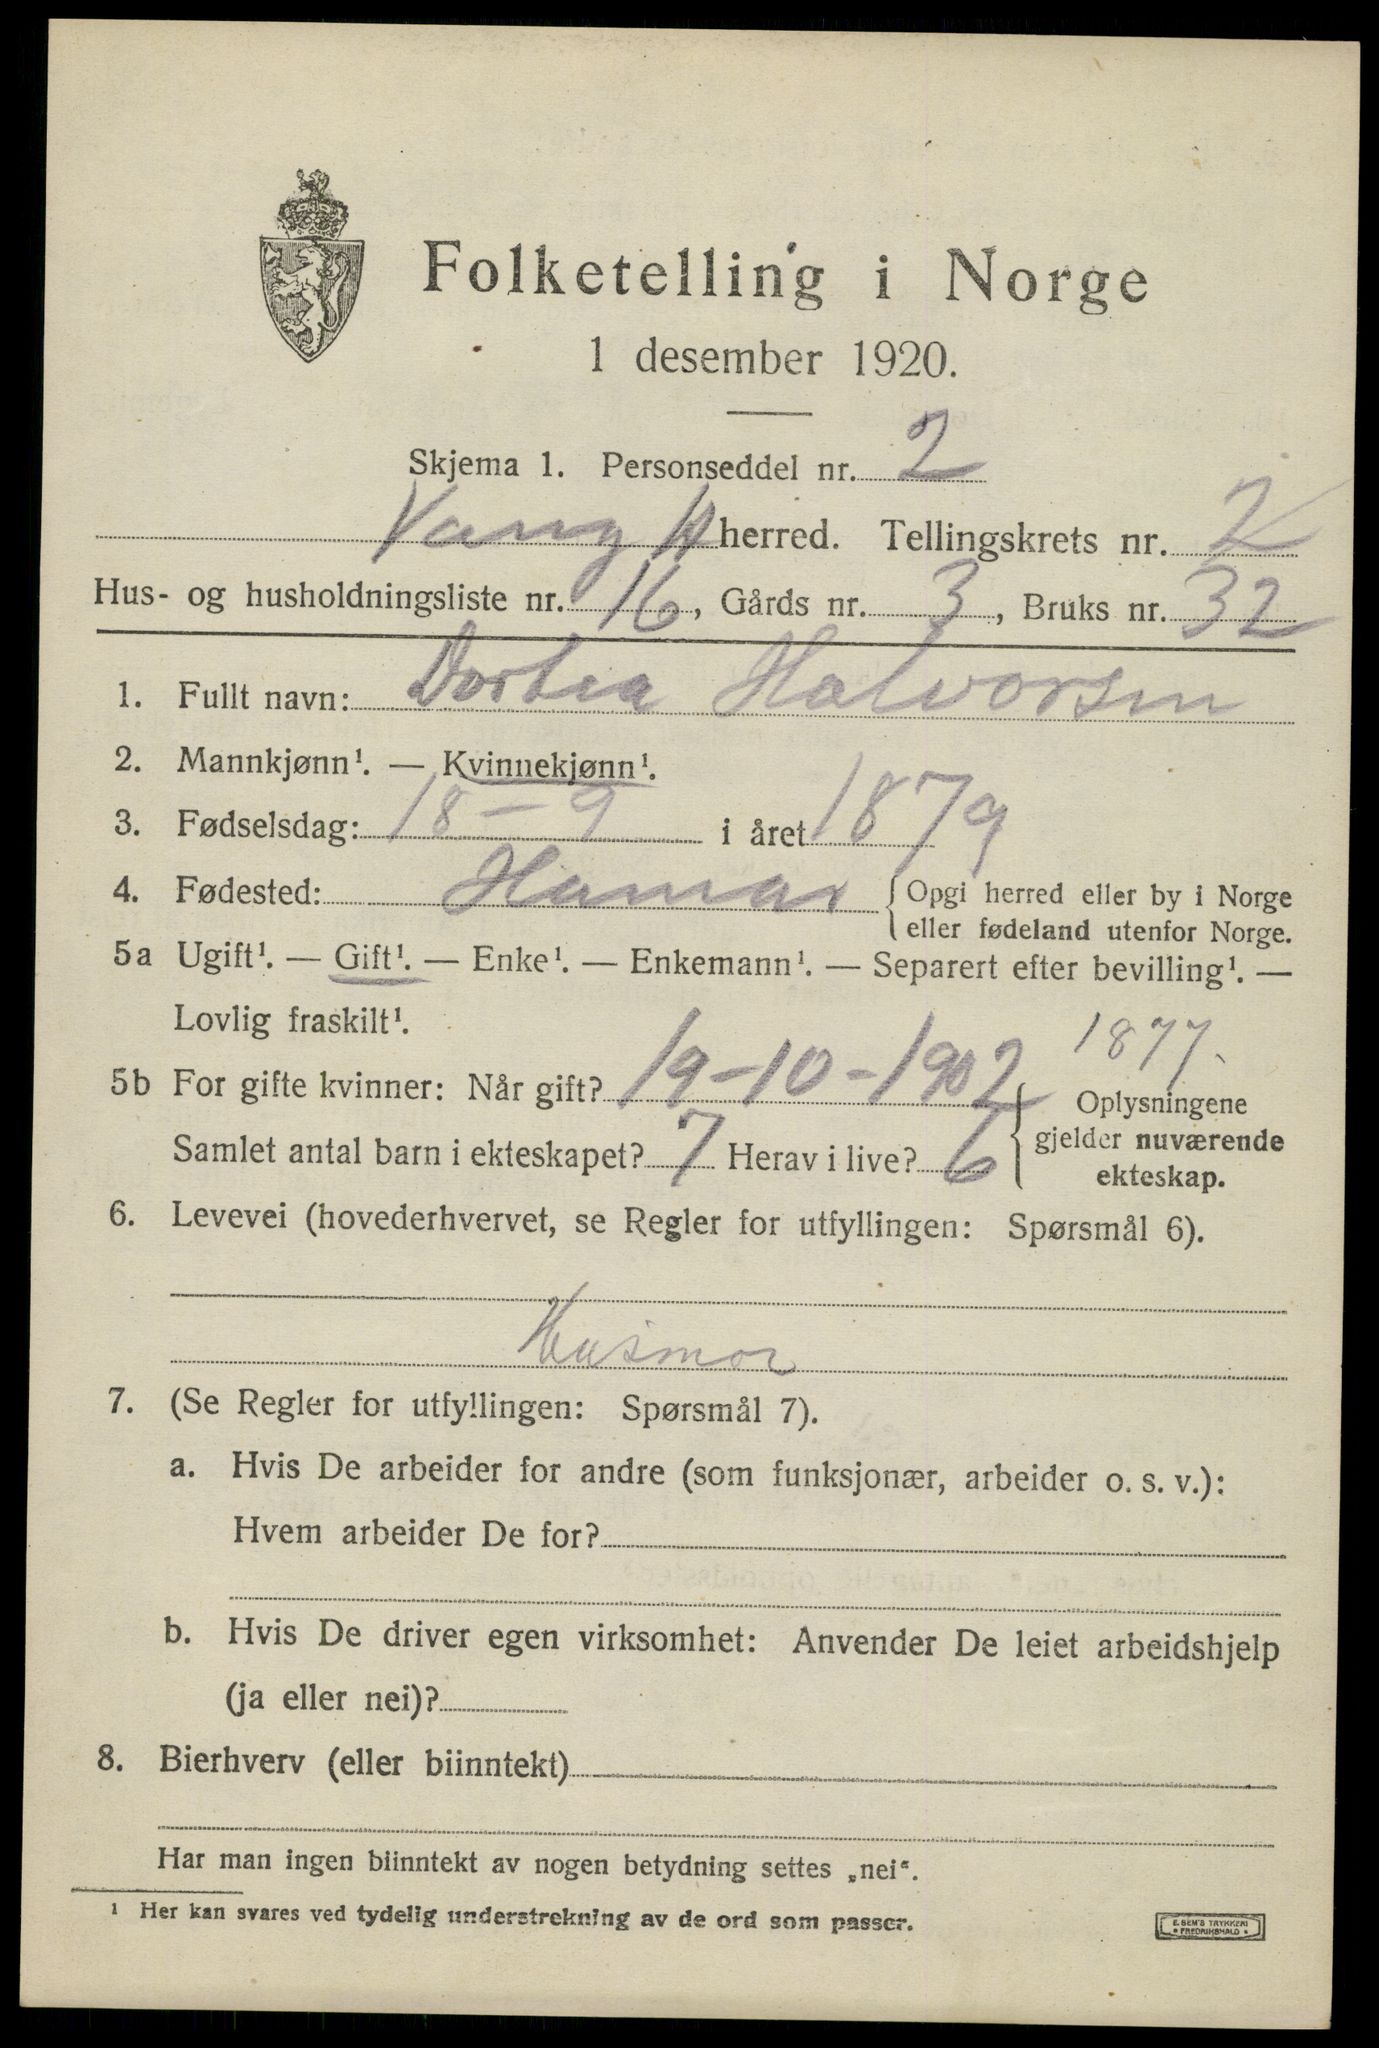 Folketelling i Norge
1 desember 1920.
Skjema 1. Personseddel nr. 2
Vang H herred. Tellingskrets nr. 2
Hus- og husholdningsliste nr. 16, Gårds nr. 3, Bruks nr. 32
1. Fullt navn: Dortea Halvorsen
2. Mannkjønn¹. — Kvinnekjønn¹.
3. Fødselsdag: 18 - 9 i året 1879
4. Fødested: Hamar { Opgi herred eller by i Norge
eller fødeland utenfor Norge.
5a Ugift¹. — Gift¹. — Enke¹. — Enkemann¹. — Separert efter bevilling¹. —
Lovlig fraskilt¹.
1877.
5b For gifte kvinner: Når gift? 19-10-1902 { Oplysningene
gjelder nuværende
ekteskap.
Samlet antal barn i ekteskapet? 7 Herav i live? 6
6. Levevei (hovederhvervet, se Regler for utfyllingen: Spørsmål 6).
Husmor
7. (Se Regler for utfyllingen: Spørsmål 7).
a. Hvis De arbeider for andre (som funksjonær, arbeider o. s. v.):
Hvem arbeider De for?
b. Hvis De driver egen virksomhet: Anvender De leiet arbeidshjelp
(ja eller nei)?
8. Bierhverv (eller biinntekt)
Har man ingen biinntekt av nogen betydning settes „nei".
¹ Her kan svares ved tydelig understrekning av de ord som passer.
E. SEM'S TRYKKERI
* FREDRIKSHALD *